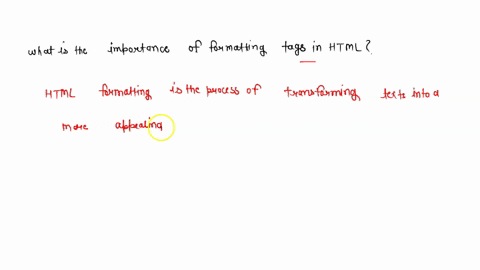 what is the importance of formatting tags in HTML?
HTML formatting is the process of transforming texts into a
more appealing